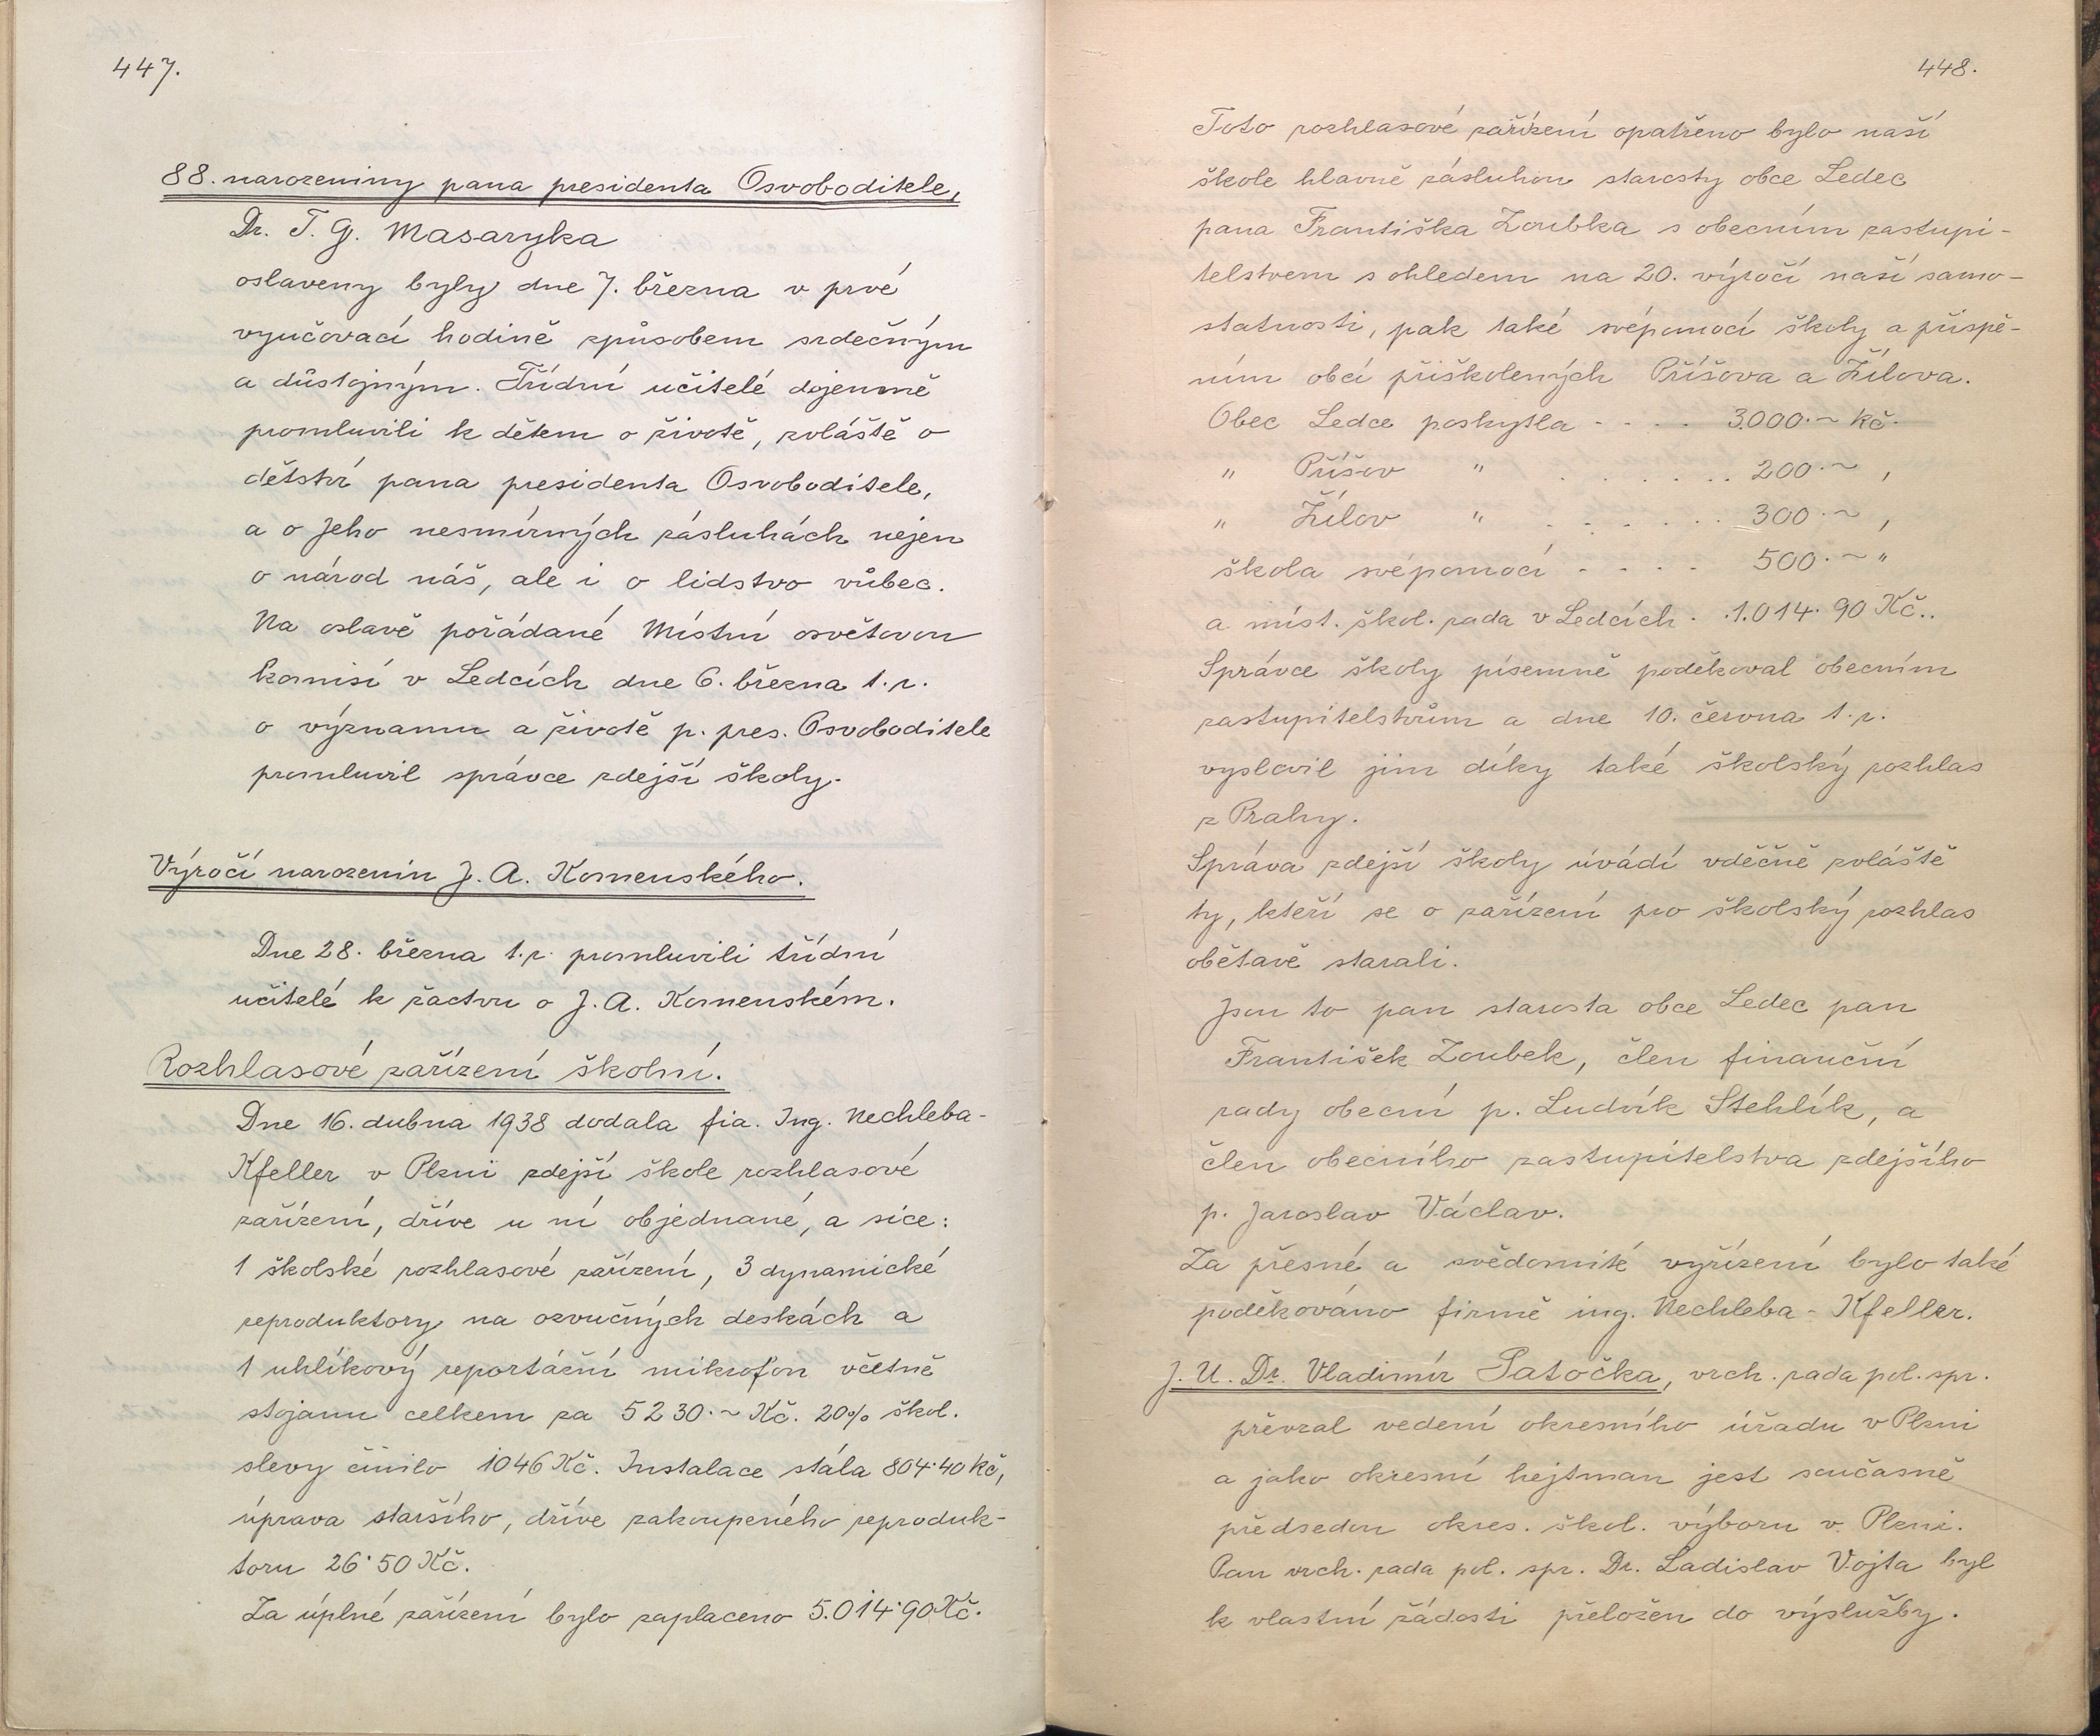 447.
88. narozeniny pana presidenta Osvoboditele,
Dr. T. G. Masaryka
oslaveny byly dne 7. března v prvé
vyučovací hodině způsobem srdečným
a důstojným. Třídní učitelé dojemně
promluvili k dětem o životě, zvláště o
dětství pana presidenta Osvoboditele,
a o Jeho nesmírných zásluhách nejen
o národ náš, ale i o lidstvo vůbec.
Na oslavě pořádané Místní osvětovou
komisí v Ledcích dne 6. března t. r.
o významu a životě p. pres. Osvoboditele
promluvil správce zdejší školy.
Výročí narozenin J. A. Komenského.
Dne 28. března t. r. promluvili třídní
učitelé k žactvu o J. A. Komenském.
Rozhlasové zařízení školní.
Dne 16. dubna 1938 dodala fia. Ing. Nechleba-
Kfeller v Plzni zdejší škole rozhlasové
zařízení, dříve u ní objednané, a sice:
1 školské rozhlasové zařízení, 3 dynamické
reproduktory na ozvučných deskách a
1 uhlíkový reportážní mikrofon včetně
stojanu celkem za 5230.~ Kč. 20% škol.
slevy činilo 1046 Kč. Instalace stála 804·40 kč,
úprava staršího, dříve zakoupeného reproduk-
toru 26·50 Kč.
Za úplné zařízení bylo zaplaceno 5.014·90 Kč.
448.
Toto rozhlasové zařízení opatřeno bylo naší
škole hlavně zásluhou starosty obce Ledec
pana Františka Zoubka s obecním zastupi-
telstvem s ohledem na 20. výročí naší samo-
statnosti, pak také svépomocí školy a přispě-
ním obcí přiškolených Příšova a Žílova.
Obec Ledce poskytla - - - . 3.000.~ kč.
" Příšov " . . . . . . . 200.~ ,
" Žílov " . . . . . . 300.~ ,
škola svépomocí - - - - 500.~ "
a míst. škol. rada v Ledcích . .1.014·90 Kč..
Správce školy písemně poděkoval obecním
zastupitelstvům a dne 10. června t. r.
vyslovil jim díky také školský rozhlas
z Prahy.
Správa zdejší školy úvádí vděčně zvláště
ty, kteří se o zařízení pro školský rozhlas
obětavě starali.
Jsou to pan starosta obce Ledec pan
František Zoubek, člen finanční
rady obecní p. Ludvík Stehlík, a
člen obecního zastupitelstva zdejšího
p. Jaroslav Václav.
Za přesné a svědomité vyřízení bylo také
poděkováno firmě ing. Nechleba - Kfeller.
J. U. Dr. Vladimír Patočka, vrch. rada pol. spr.
převzal vedení okresního úřadu v Plzni
a jako okresní hejtman jest současně
předsedou okres. škol. výboru v Plzni.
Pan vrch. rada pol. spr. Dr. Ladislav Vojta byl
k vlastní žádosti přeložen do výslužby.